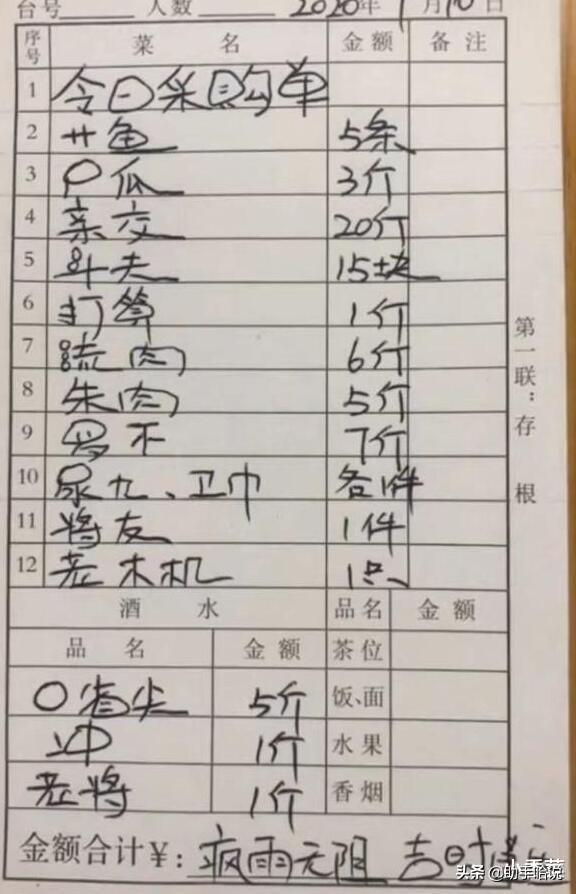 台号 人数 2020年1月10日
序号 菜名 金额 备注
1 令日采购单
2 廿鱼 5条
3 户瓜 3斤
4 亲交 20斤
5 斗夫 15块
6 打算 1斤
7 跣肉 6斤
8 朱肉 5斤
9 罗不 7斤
10 尿九、卫巾 各1件
11 将友 1件
12 老木机 1只
酒水 品名 金额
品名 金额 茶位
〇着尖 5斤 饭、面
冲 1斤 水果
老将 1斤 香烟
金额合计￥: 疯雨元阻 吉时
第一联:存根
小季范
头条 @助手哈说